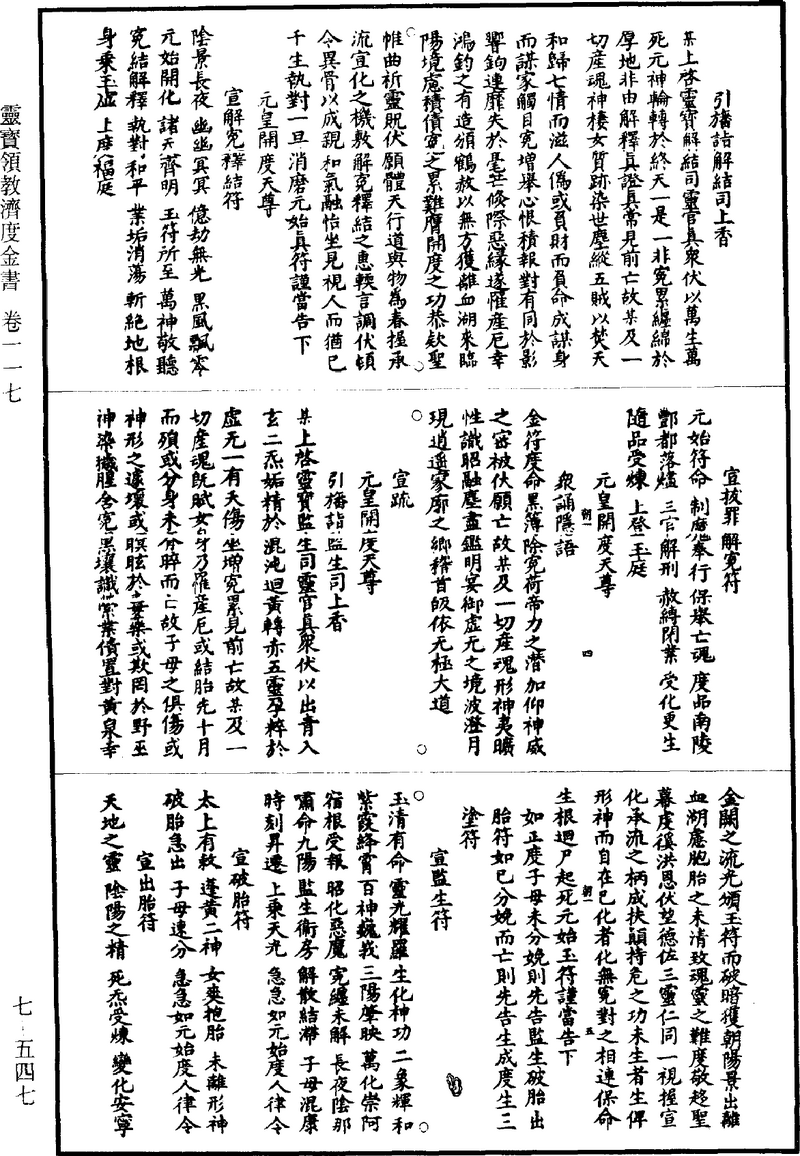 引旛詣解結司上香
某上啓靈寶解結司靈官眞衆伏以萬生萬
死元神輪轉於終天一是一非寃累纏綿於
厚地非由解釋眞證眞常見前亡故某及一
切產魂神棲女質跡染世塵縱五賊以焚天
和歸七情而滋人僞或負財而負命成謀身
而謀家觸目寃增舉心恨積報對有同於影
響鉤連靡失於毫芒倐際惡緣遂罹產厄幸
鴻鈞之有造頒鶴赦以無方獲離血湖來臨
陽境慮積債寃之累難膺開度之功恭欽聖
帷曲祈靈貺伏願體天行道與物爲春揔承
流宣化之機敷解寃釋結之惠輭言調伏頓
令異骨以成親和氣融怡坐見視人而猶已
千生執對一旦消磨元始眞符謹當告下
元皇開度天尊
宣解寃釋結符
陰景長夜 幽幽冥冥 億劫無光 黑風飄零
元始開化 諸天齊明 玉符所至 萬神敬聽
寃結解釋 執對和平 業垢消蕩 斬絶地根
身乘玉虛 上度福庭
宣拔罪解寃符
元始符命 制魔奉行 保舉亡魂 度品南陵
酆都落爐 三官解刑 赦縛閉業 受化更生
隨品受煉 上登玉庭
元皇開度天尊
衆誦隱語
金符度命黑簿除寃荷帝力之潛加仰神威
之密被伏願亡故某及一切產魂形神夷曠
性識昭融塵盡鑑明安御虛无之境波澄月
現逍遥寥廓之鄉稽首皈依无極大道
宣疏
元皇開度天尊
引旛詣監生司上香
某上啓靈寶監生司靈官眞衆伏以出青入
玄二炁姤精於混沌迴黃轉赤五靈孕粹於
虛无一有夭傷坐增寃累見前亡故某及一
切產魂旣賦女身乃罹產厄或結胎先十月
而殞或分身未分晬而亡故子母之俱傷或
神形之遽壞或瞑眩於毒藥或欺罔於野巫
神染穢腥含寃黑壤識縈業債置對黃泉幸
金闕之流光頒玉符而破暗獲朝陽景出離
血湖慮胞胎之未清致魂靈之難度敬趍聖
幕虔徯洪恩伏望德佐三靈仁同一視握宣
化承流之柄成扶顚持危之功未生者生俾
形神而自在已化者化無寃對之相連保命
生根迴尸起死元始玉符謹當告下
如正度子母未分娩則先告監生破胎出
胎符如已分娩而亡則先告生成度生三
塗符
宣監生符
玉清有命 靈光耀羅 生化神功 二象輝和
紫霞絳霄 百神巍峩 三陽肇映 萬化崇阿
宿根受報 昭化惡魔 寃纏未解 長夜陰那
嘯命九陽 監生衛房 解散結滯 子母混康
時刻昇遷 上乘天光 急急如元始度人律令
宣破胎符
太上有敕 蓬黃二神 女爽抱胎 未離形神
破胎急出 子母速分 急急如元始度人律令
宣出胎符
天地之靈 陰陽之精 死炁受煉 變化安寧
靈寶領教濟度金書 卷一一七
七-五四七